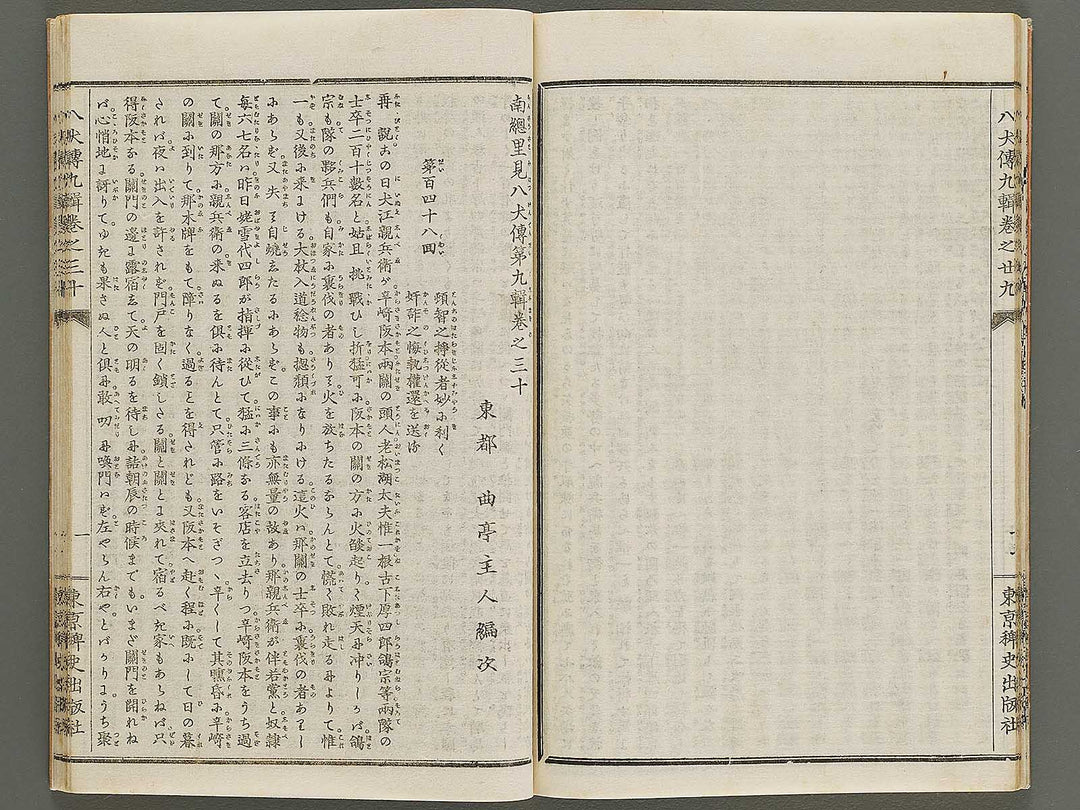 八犬傳九輯卷之廿九
東京稗史出版社
南總里見八犬傳第九輯卷之三十
東都 曲亭主人編次
第百四十八回
頓智之搏從者妙に利く
奸詐之悔執權還を送る
再説この日犬江親兵衞が辛崎阪本兩關の頭人老松湖太夫惟一根古下厚四郎鴿宗等兩隊の
士卒二百十數名と姑且挑戰ひし折猛可に阪本の關の方に火燄起りて煙天に冲りしかバ鴿
宗も隊の夥兵們も自家に裏伐の者ありて火を放ちたるならんとて慌て敗れ走るによりて惟
一も又後に來にける大杖入道稔物も摠頽になりにける這火ハ那關の士卒に裏伐の者ありし
にあらず又失て自燒したるにあらずこの事にも亦無量の故あり那親兵衞が伴若黨と奴隸
毎六七名ハ昨日姥雪代四郎が指揮に從ひて猛に三條なる客店を立去りつ辛崎阪本をうち過
て關の那方に親兵衞の來ぬるを倶に待んとて只管に路をいそぎつゝ辛くして其曛昏に辛崎
の關に到りて那木牌をもて障りなく過ることを得されども又阪本へ赴く程に既にして日の暮
されバ夜ハ出入を許されず門戸を固く鎖したる關と關とに夾れて宿るべき家もあらねバ只
得阪本なる關門の邊に露宿して天の明るを待しに詰朝辰の時候までもいまだ關門を開れね
バ心悄地に訝りてゆきも果さぬ人と倶に敢叨に喚門ハず左やらん右やとバかりにうち聚
八犬傳九輯卷之三十
一
東京稗史出版社